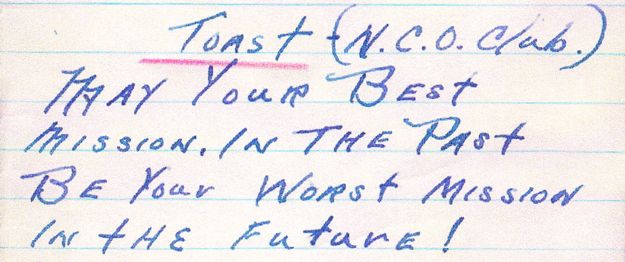 Toast - (N.C.O. Club.)
May Your Best
Mission. In The Past
Be Your Worst Mission
In the Future!